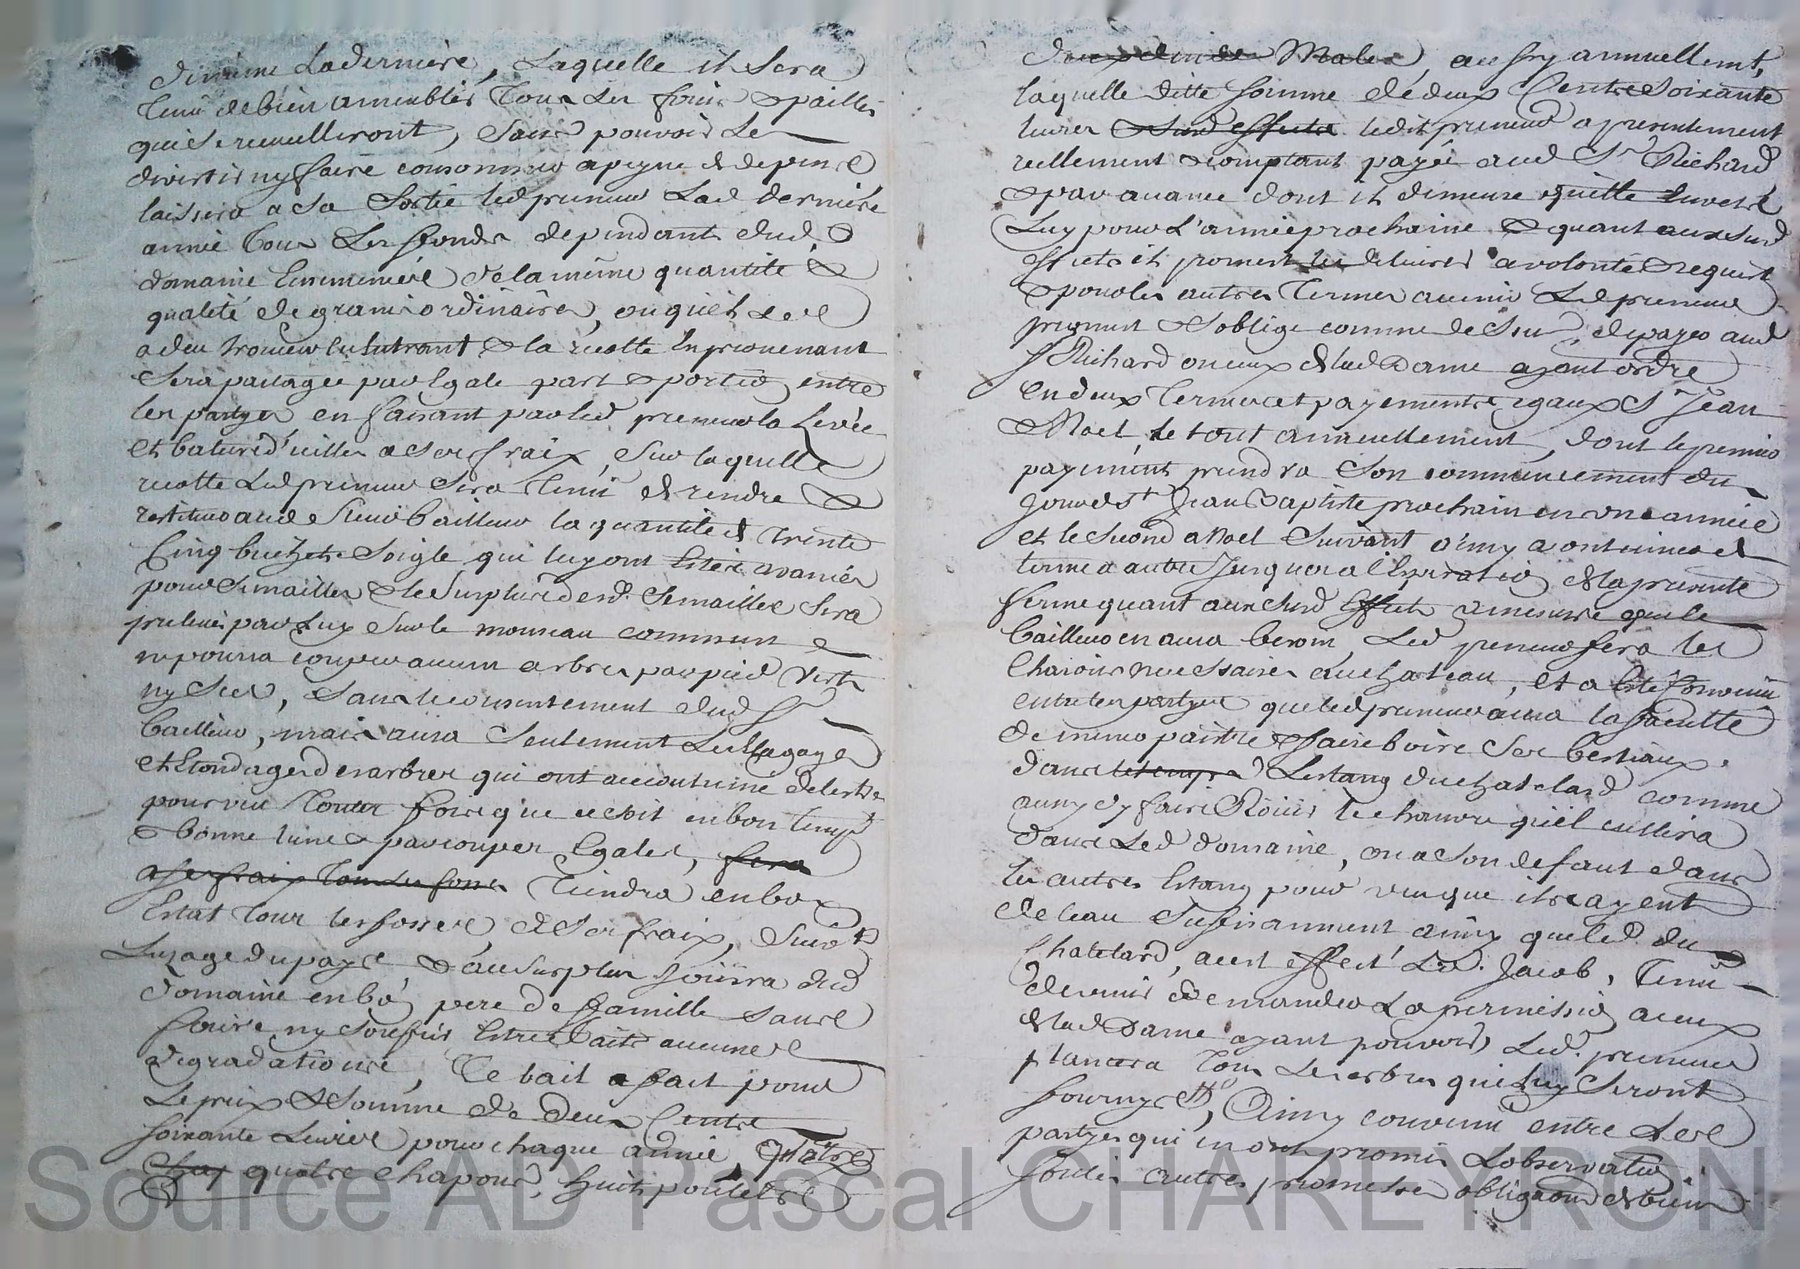 dixième La dernière, Laquelle il sera
Tenu de bien ameublir Tous Les foins & pailles
qui se recueilleront, sans pouvoir Les
divertir ny faire consommer a peyne de depens &
laissera a sa Sortie led preneur Lad derniere
année Tous Les fonds dependants dud
domaine Ensemencé de la même quantité &
qualité de grains ordinaires, qu'il Les
a deu trouver & la récolte En provenant
Sera partagée par Egale part & portio entre
les partyes en faisant par led preneur la Levée
et bature d'icelles a ses fraix, Sur laquelle
récolte Led preneur Sera Tenu de rendre &
restituer aud Sieur bailleur la quantité de Trente
Cinq bichets Soigle qui luy ont Estés avancés
pour Semailles & le Surplus desd. Semailles Sera
prelevé par Eux Sur le monceau commun
ne pourra couper aucun arbres par pied Verts
ny Secs, Sans le consentement dud Sr
bailleur, mais aura Seulement Les
et Etondages des arbres qui ont accoutumé de l'estre
pourveu Toutes fois que ce soit en bon temps
& bonne lune & par coupes Egales, fera
a ses fraix Tous les fossés Tiendra en bon
Estat Tous les fossés, a Ses fraix, Suivt
Luzage du pays & au Surplus Jouïra dud
Domaine en bo pere de famille Sans
faire ny Soufrir Estre Faite aucunes
degradations, Ce bait a fait pour
Le prix & Somme de deux Cents
soixante Livres pour chaque année quatre
quatre Chapons, huit poulets
Males aussy annuellemt,
laquelle ditte somme de deux Cents soixante
livres & susd effects ledit preneur a presentement
reellement & comptant payée aud Sr Richard
& par avance dont il demeure quitte Envers
Luy pour L'année prochaine & quant aux Susd
effects il promest les délivrer a volonté & requise
& pour les autres Termes avenir Led preneur
promest & s'oblige comme dessus, de payer aud
Sr Richard ou eux & lad Dame ayant ordre
En deux Termes et payements egaux St Jean
& Noel, le tout annuellement, dont le premier
payement prendra Son commencement du
Jour de St Jean Baptiste prochain en une année
et le Second a Noel Suivant ainsy a continuer de
terme a autre Jusques a l'Expiratio de la presente
ferme quant aux Susd Effects a mesure que le
bailleur en aura besoin, Led preneur fera les
Charois necessaires au chateau, et a Esté convenu
entre les partyes que led preneur aura la faculté
de mener paistre & faire boire Ses bestiaux
dans le temps L'estang du chatelard comme
aussy d'y faire Roüir le chanvre qu'il cuillira
dans Led domaine, ou a Son defaut dans
les autres Estang pour veu que il y ayent
de l'eau Sufisamment ainsy que led. du
Chatelard, a cest effect Led. Jacob, Tenu
de venir demander La permissio a eux
& lad Dame ayant pouvoir, Led. preneur
plantera Tous Les arbres qui luy Seront
fournys &c, Ainsy convenu entre Les
partyes qui en ont promis L'observatio
Soubs autres promesses obligaons de biens
Source AD Pascal CHAREYRON